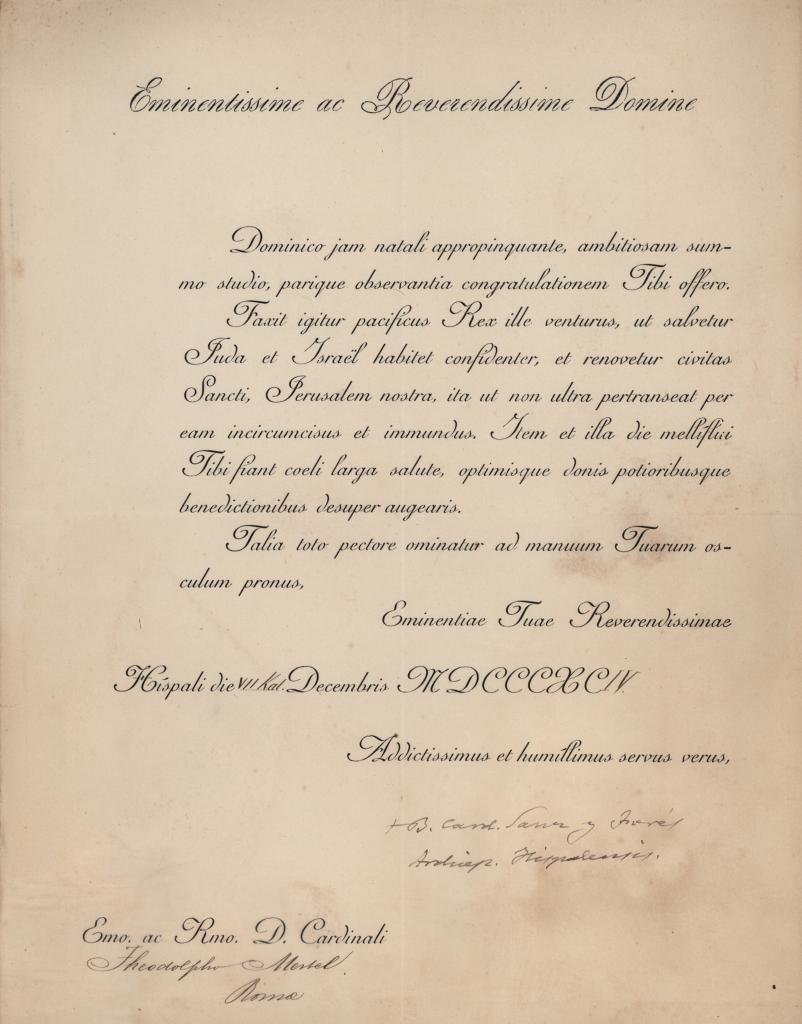 Eminentissime ac Reverendissime Domine
Dominico jam natali appropinquante, ambitiosam sum-
mo studio, parique observantia congratulationem Tibi offero.
Faxit igitur pacificus Rex ille venturus, ut salvetur
Juda et Israël habitet confidenter, et renovetur civitas
Sancti, Jerusalem nostra, ita ut non ultra pertranseat per
eam incircumcisus et immundus. Item et illa die melliflui
Tibi fiant coeli larga salute, optimisque donis potioribusque
benedictionibus desuper augearis.
Talia toto pectore ominatur ad manuum Tuarum os-
culum pronus,
Eminentiae Tuae Reverendissimae
Hispali die VII Kal. Decembris MDCCCXCIV.
Addictissimus et humillimus servus verus,
+ B. Card. Sanz y Forés
Archiep. Hispalensis.
Emo. ac Rmo. D. Cardinali
Theodolpho Mertel.
Romæ